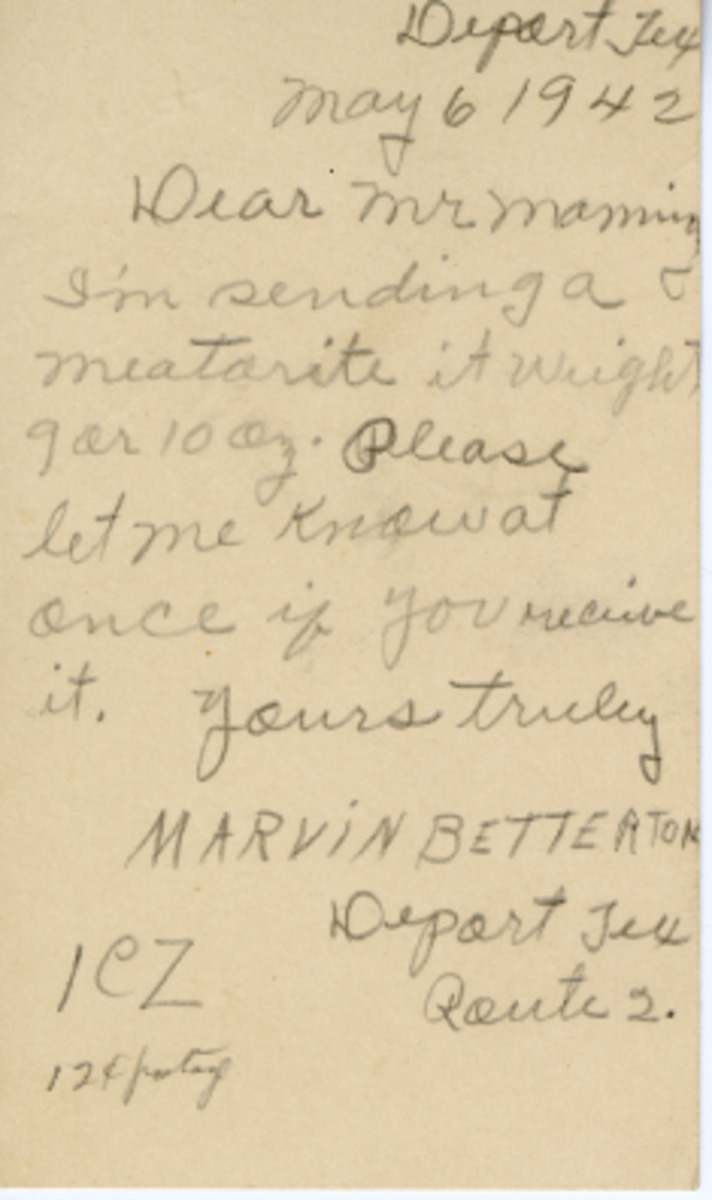 Deport Tex
May 6 1942
Dear Mr Mannin
I'm sending a
meatarite it weight
9 or 10 oz. Please
let me know at
once if you receive
it. Yours truley
MARViN BETTERTON
Deport Tex
Route 2.
12¢ postag